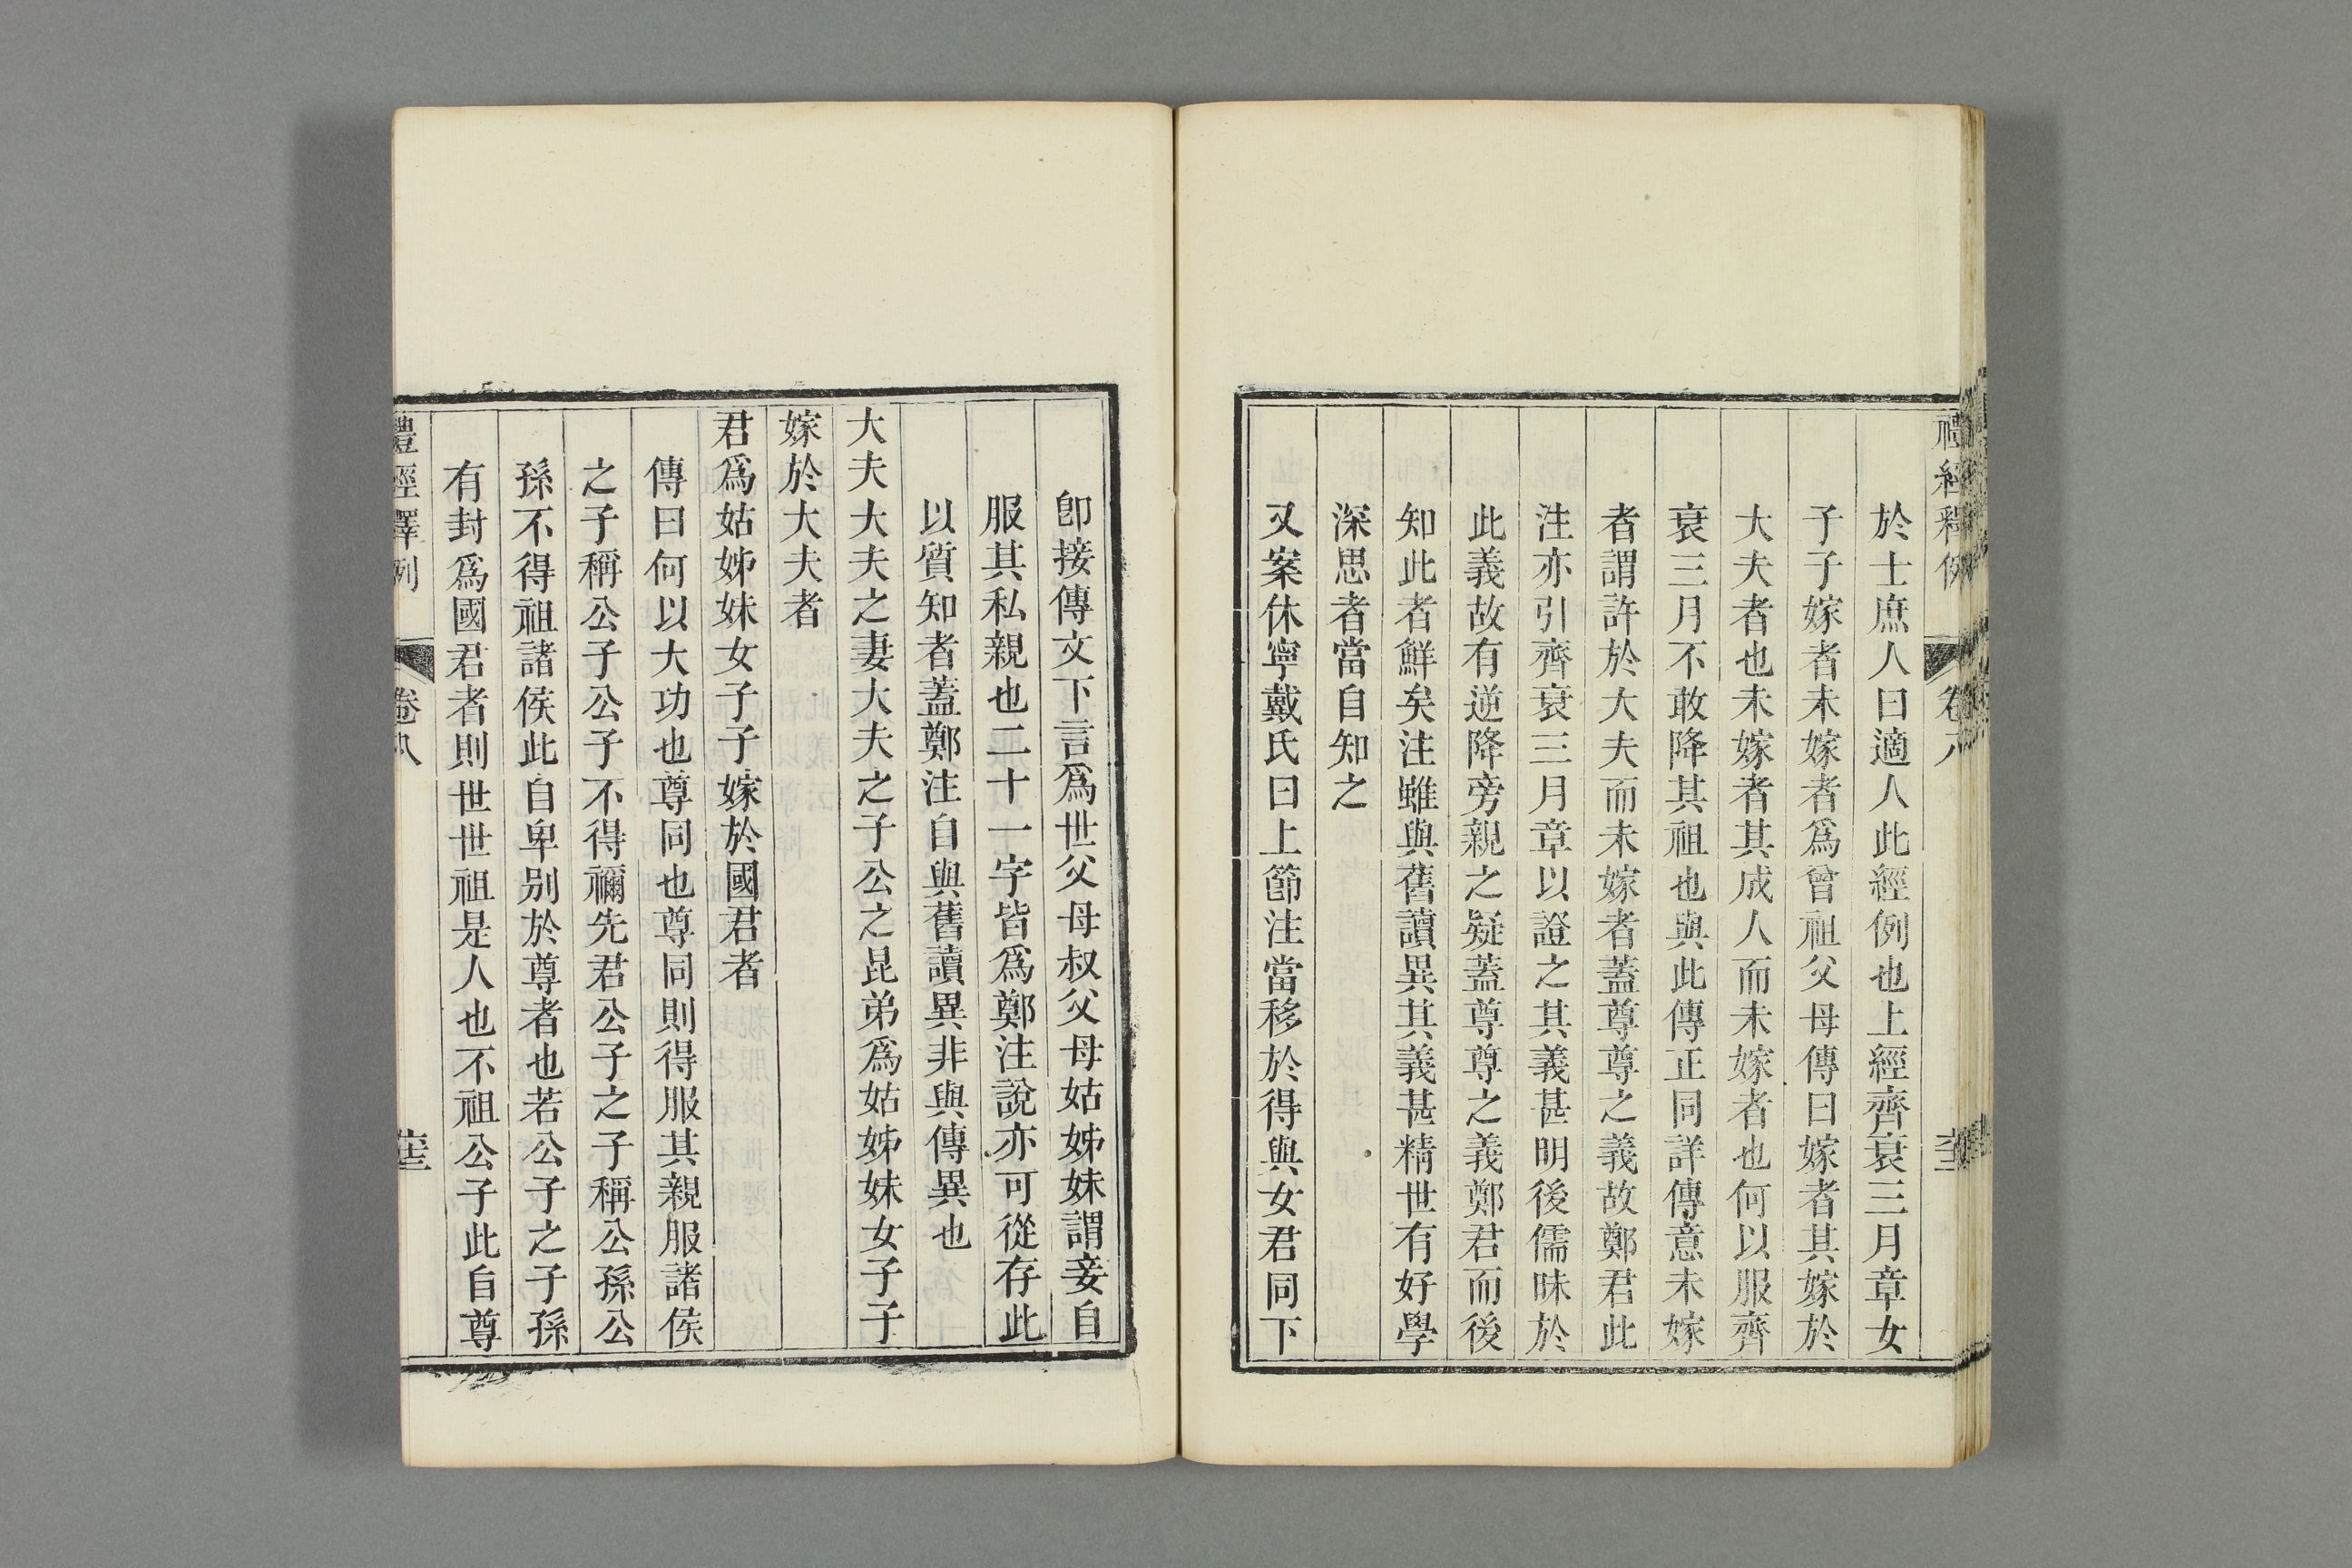 禮經釋例
卷八
於士庶人曰適人此經例也上經齊衰三月章女
子子嫁者未嫁者爲曾祖父母傳曰嫁者其嫁於
大夫者也未嫁者其成人而未嫁者也何以服齊
衰三月不敢降其祖也與此傳正同詳傳意未嫁
者謂許於大夫而未嫁者蓋尊尊之義故鄭君此
注亦引齊衰三月章以證之其義甚明後儒昧於
此義故有逆降旁親之疑蓋尊尊之義鄭君而後
知此者鮮矣注雖與舊讀異其義甚精世有好學
深思者當自知之
又案休寧戴氏曰上節注當移於得與女君同下
卽接傳文下言爲世父母叔父母姑姊妹謂妾自
服其私親也二十一字皆爲鄭注說亦可從存此
以質知者蓋鄭注自與舊讀異非與傳異也
大夫大夫之妻大夫之子公之昆弟爲姑姊妹女子子
嫁於大夫者
君爲姑姊妹女子子嫁於國君者
傳曰何以大功也尊同也尊同則得服其親服諸侯
之子稱公子公子不得禰先君公子之子稱公孫公
孫不得祖諸侯此自卑別於尊者也若公子之子孫
有封爲國君者則世世祖是人也不祖公子此自尊
禮經釋例
卷八